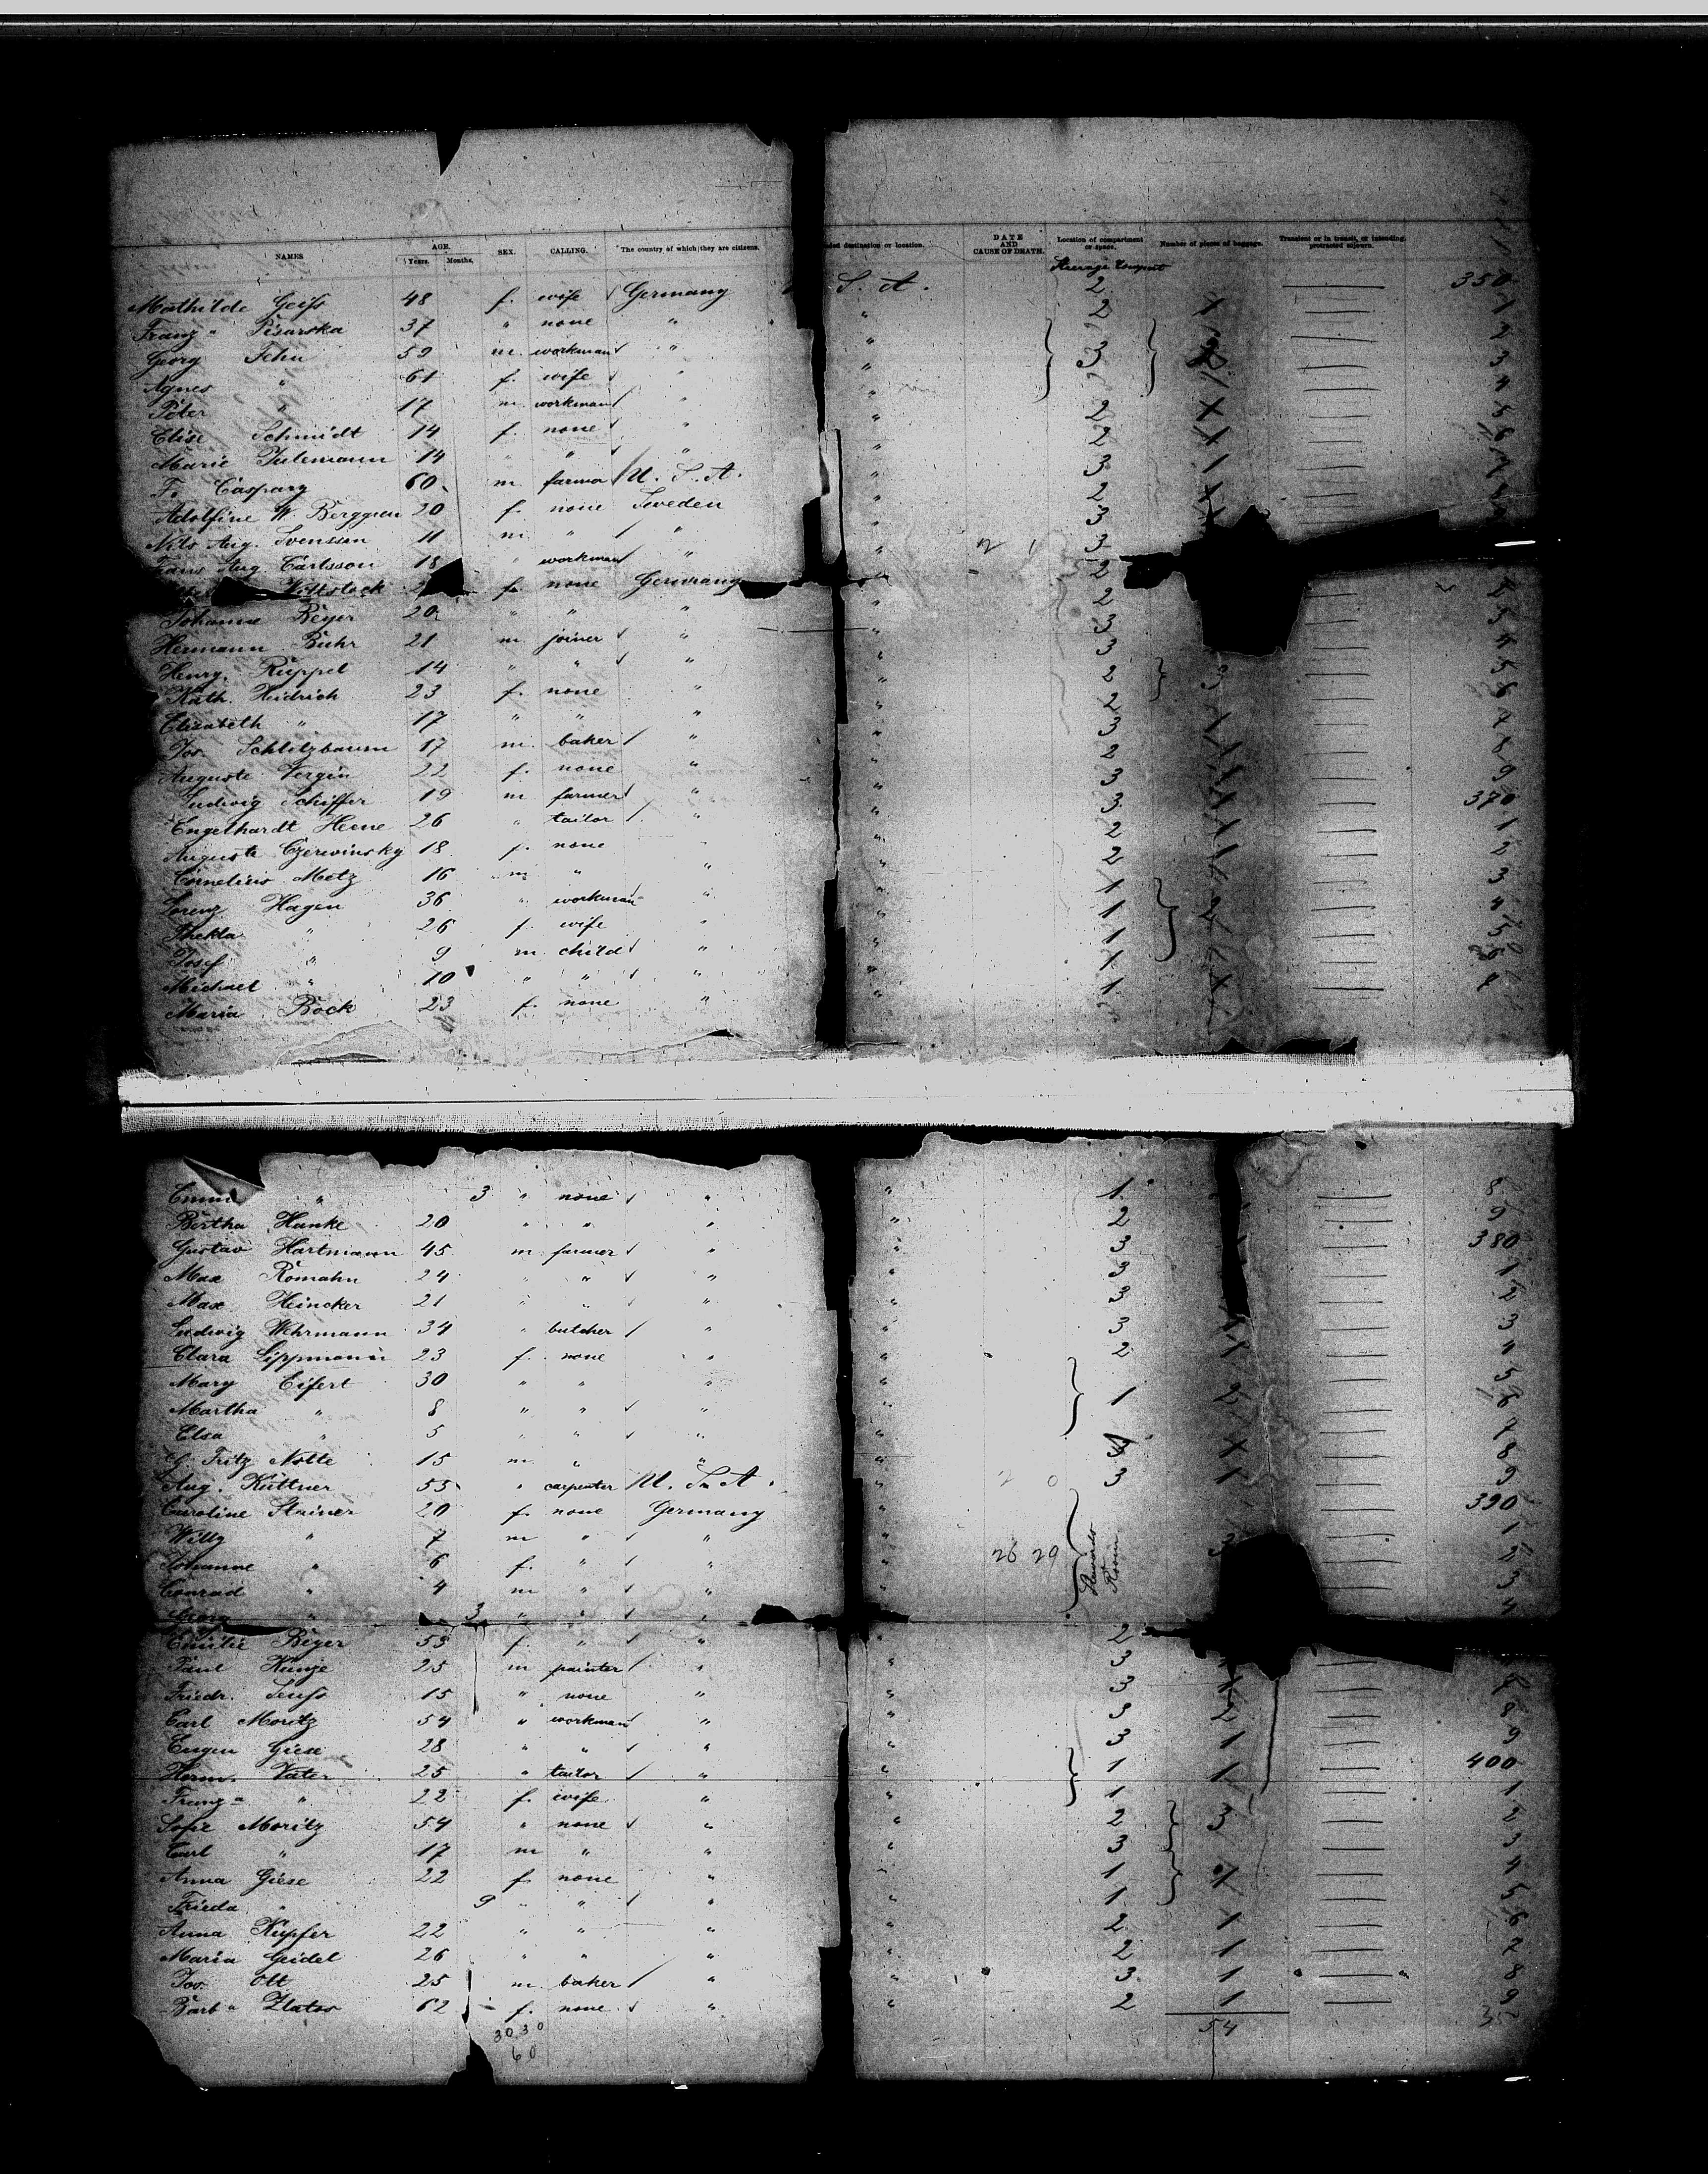 NAMES AGE. Years. Months. SEX. CALLING. The country of which they are citizens. ded destination or location. DATE AND CAUSE OF DEATH. Location of compartment or space. Number of pieces of baggage. Transient or in transit, or intending protracted sojourn.
Steerage
Mathilde Geiss 48 f. wife Germany S. A. 2 350
Franz a Pisarska 37 " none " " 2 1 1
Georg Fehn 59 m. workman " " 2
Agnes " 61 f. wife " " 3 3
Peter " 17 m. workman " " 4
Elise Schmidt 14 f. none " " 2 1
Marie 14 " " " " 2 1
F. Caspary 60 m. farmer U. S. A. " 3 1
Adolfine W. Berggren 20 f. none Sweden " 2 1
Nils Aug. Svensson 11 m. " " " 3
Aug. Carlsson 18 " workman " " 3
f. none Germany " 2
Johanne Beyer 20 " " " " 2 2
Hermann Buhr 21 m joiner " " 3 3
Henry Ruppel 14 " " " " 3 4
Kath. Heidrich 23 f. none " " 2 3 5
Elisabeth " 17 " " " " 2 6
Jos. Schlitzbaum 17 m. baker " " 3 1 7
Auguste Vergin 22 f. none " " 2 1 8
Ludwig Schiffer 19 m farmer " " 3 1 9
Engelhardt Heene 26 " tailor " " 3 1 370
Auguste Czerwinsky 18 f. none " " 2 1 1
Cornelius Metz 16 m " " " 2 1 2
Lorenz Hagen 36 " workman " " 1 3
Thekla " 26 f. wife " " 1 4
Josef " 9 m. child " " 1 5
Michael " 10 " " " " 1 6
Maria Böck 23 f. none " " 1 7
Emma " 3 " none " " 1 8
Bertha Hanke 20 " " " " 2 9
Gustav Hartmann 45 m farmer " " 3 380
Max Romahn 24 " " " " 3 1
Max Heincker 21 " " " " 3 2
Ludwig Wehrmann 34 " butcher " " 3 1 3
Clara Lippmann 23 f. none " " 2 1 4
Mary Eifert 30 " " " " 1 2 5
Martha " 8 " " " " 6
Elsa " 5 " " " " 7
Fritz Notte 15 m. " " " 1 8
Aug. Küttner 55 " carpenter U. S. A. " 3 1 9
Caroline Steiner 20 f. none Germany " 390
Willy " 7 m " " " 3 1
Johanne " 6 f. " " " 2
Conrad " 4 m " " " 3
Georg " 3 " " " " 4
26 29
Room
Emilie Beyer 55 f. " " " 2
Paul Kunze 25 m painter " " 3
Friedr. Senfs 15 " none " " 3 7
Carl Moritz 54 " workman " " 3 2 8
Eugen Giese 28 " " " " 3 1 9
Herm. Vater 25 " tailor " " 1 1 400
Franz a " 22 f. wife " " 1 1
Sofie Moritz 54 " none " " 2 3 2
Carl " 17 m " " " 3 3
Anna Giese 22 f. none " " 1 1 4
Frieda " 9 " " " " 1 5
Anna Kupfer 22 " " " " 2 1 6
Maria Geidel 26 " " " " 2 1 7
Jos. Ott 25 m. baker " " 3 1 8
Barb a Zlatos 62 f. none " " 2 1 9
30 30
60
54